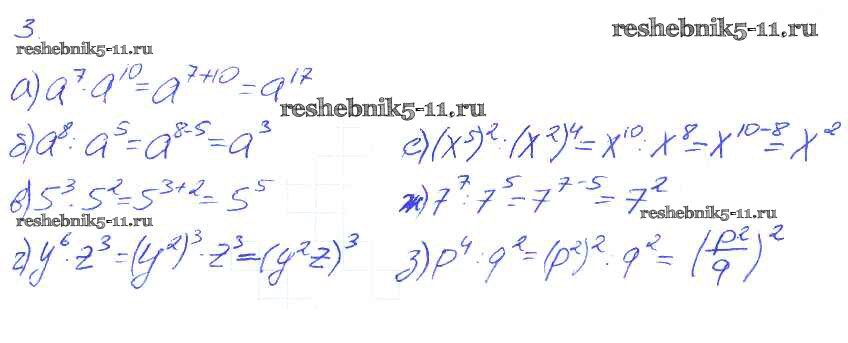 3.
reshebnik5-11.ru
reshebnik5-11.ru
а) a⁷ · a¹⁰ = a⁷⁺¹⁰ = a¹⁷
reshebnik5-11.ru
б) a⁸ : a⁵ = a⁸⁻⁵ = a³
в) 5³ · 5² = 5³⁺² = 5⁵
reshebnik5-11.ru
г) y⁶ · z³ = (y²)³ · z³ = (y²z)³
е) (x⁵)² : (x²)⁴ = x¹⁰ : x⁸ = x¹⁰⁻⁸ = x²
ж) 7⁷ : 7⁵ = 7⁷⁻⁵ = 7²
reshebnik5-11.ru
з) p⁴ : q² = (p²)² : q² = (p²/q)²